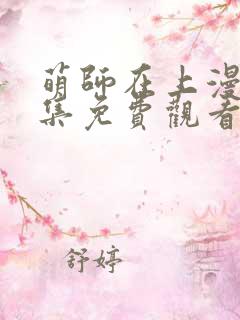 萌師在上漫
集免費觀看
舒婷